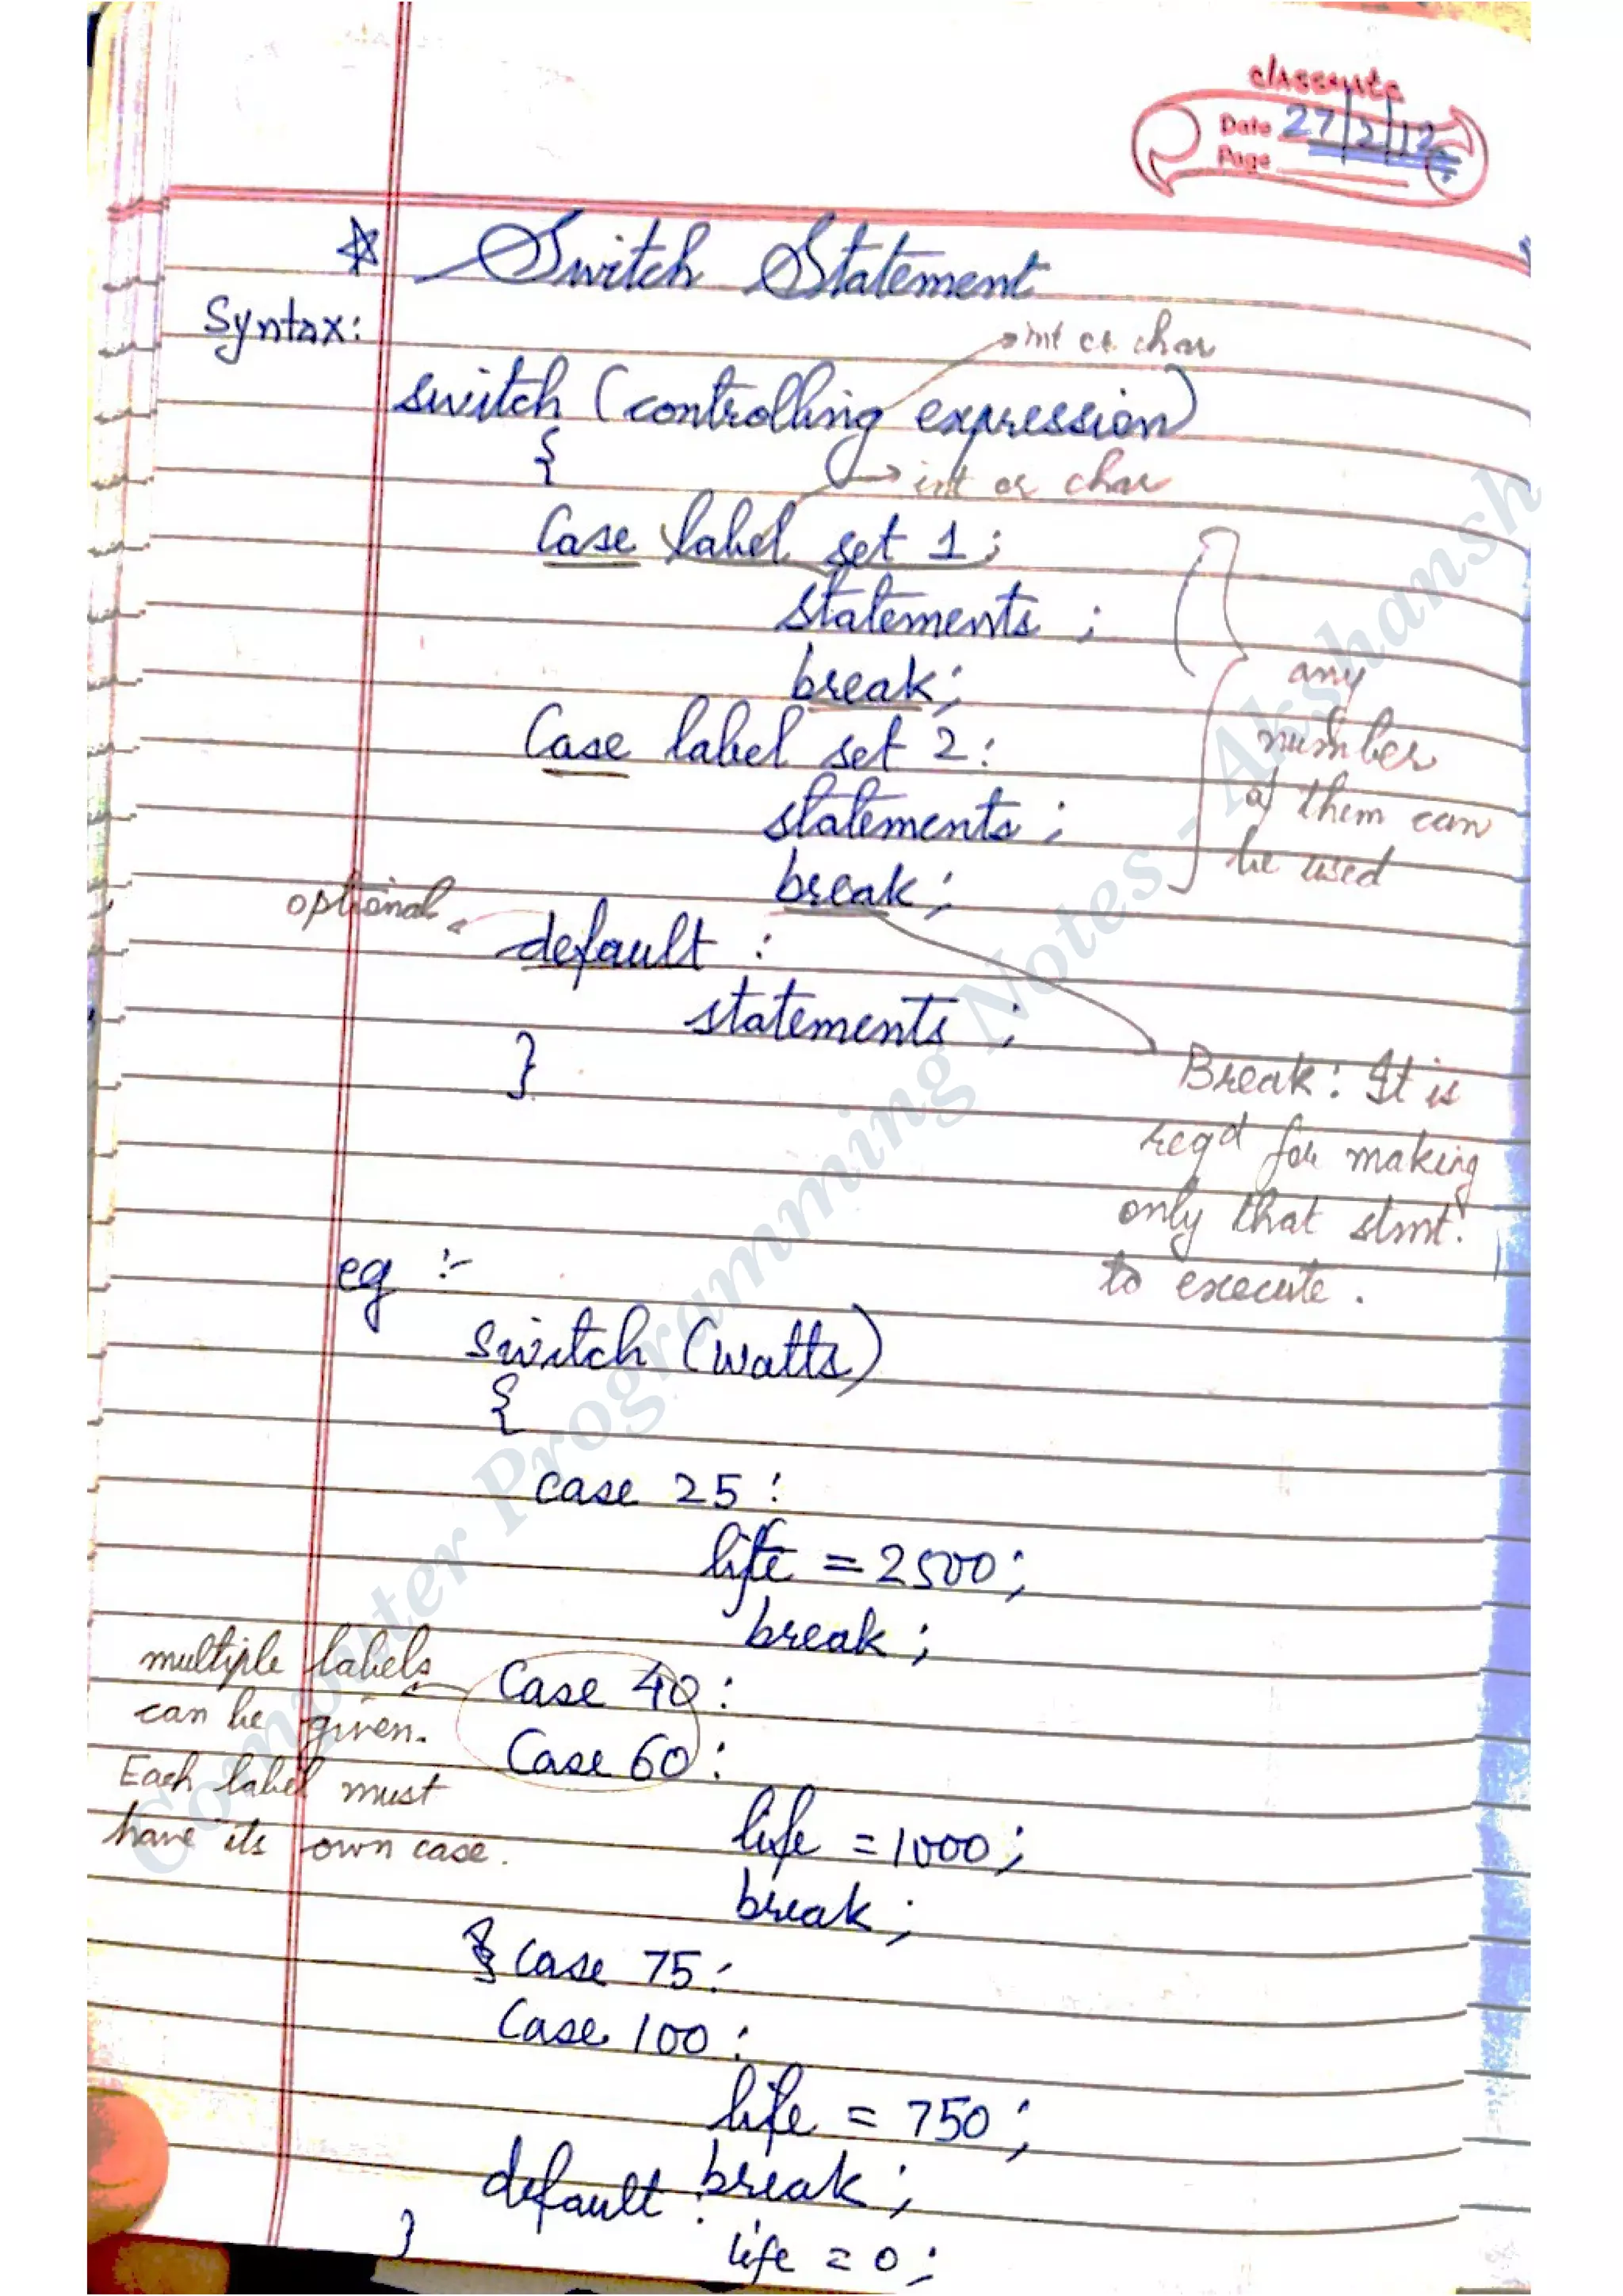 classmate
Date 27/2/12
Page
☆ Switch Statement
Syntax:
→ int or char
switch (controlling expression)
{
→ int or char
Case label set 1;
statements ;
break;
Case label set 2:
statements ;
break ;
any
number
of them can
be used
optional
default :
statements ;
}
Break: It is
reqd for making
only that stmt.
to execute.
eg :-
switch (watts)
{
case 25 :
life = 2500;
break ;
Case 40 :
Case 60 :
multiple labels
can be given.
Each label must
have its own case.
life = 1000;
break ;
case 75 :
Case 100 :
life = 750 ;
break ;
default :
life = 0 ;
}
Computer Programming Notes - Akshansh